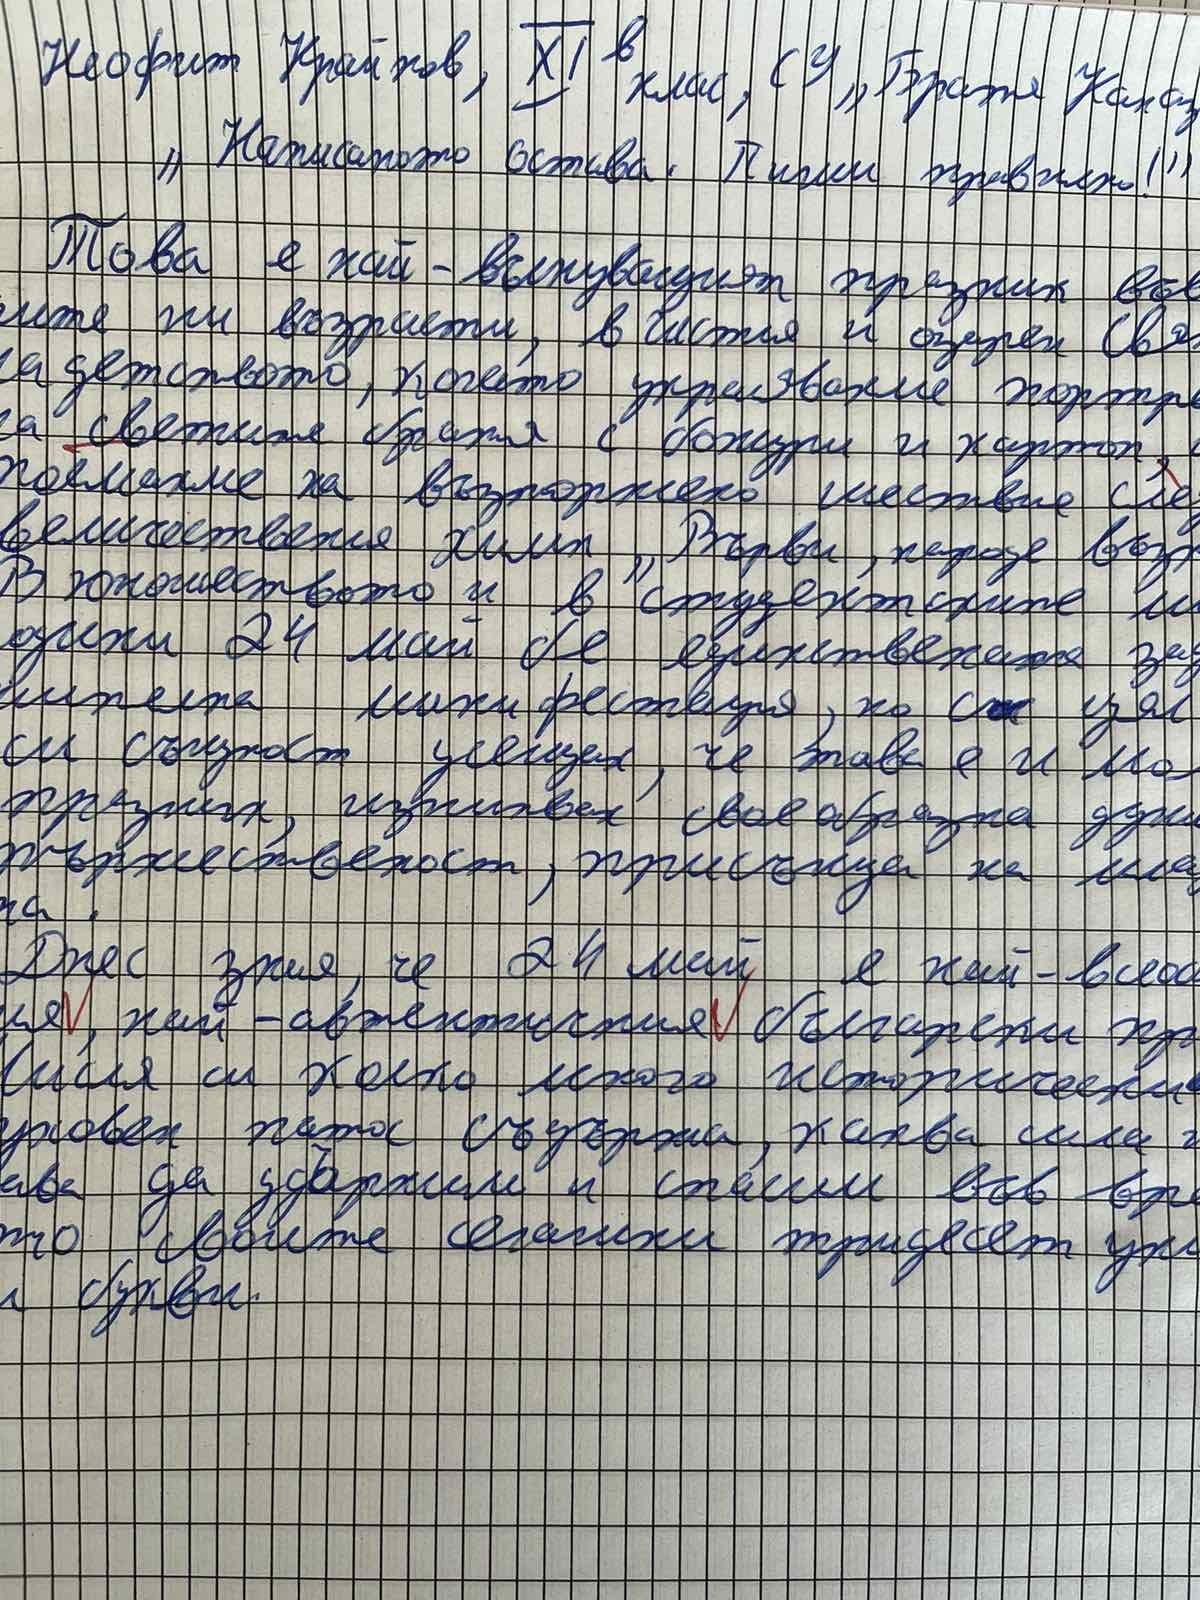 Неофит Крайчов, XI в клас, СУ „Братя Каназ
„Написаното остава. Пиши правилно!"
Това е най-вълнуващият празник във
ите ни възрасти, в чистия и озарен свя
на детството, когато украсявахме портре
на светите братя с божури и картон,
поемахме на възторжено шествие сле
величествения химн „Върви, народе възр
В юношеството и в студентските ми
одини 24 май бе единствената зад
ителна манифестация, но с цял
си същност усещах, че това е и мол
празник, изпитвах своеобразна духо
тържественост, присъща на мла
та.
Днес зная, че 24 май е най-всеоб
ия, най-автентичния български пр
мисля си колко много исторически
уховен патос съдържа, каква сила н
ава да удържим и спасим във вре
то своите сегашни тридесет уни
и букви.